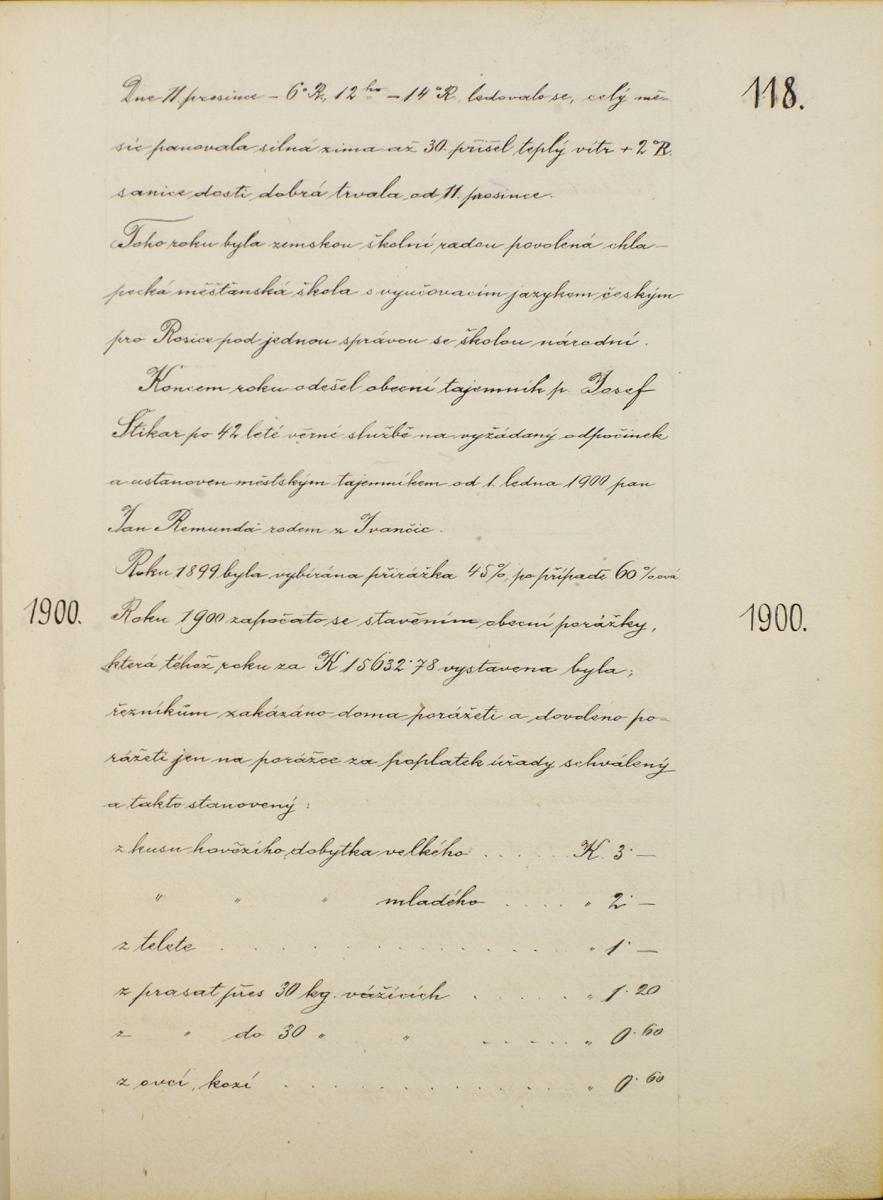 118.
Dne 11 prosince – 6°R, 12ho – 14°R, ledovalo se, celý mě-
síc panovala silná zima až 30. přišel teplý vítr + 2°R
sanice dosti dobrá trvala od 11. prosince.
Toho roku byla zemskou školní radou povolená chla-
pecká měšťanská škola s vyučovacím jazykem českým
pro Rosice pod jednou správou se školou národní.
Koncem roku odešel obecní tajemník p. Josef
Štikar po 42 leté věrné službě na vyžádaný odpočinek
a ustanoven městským tajemníkem od 1. ledna 1900 pan
Jan Remunda rodem z Ivančic.
Roku 1899 byla vybírána přirážka 45%, po případě 60%, ová
1900. Roku 1900 započato se stavěním obecní porážky, 1900.
která téhož roku za K 15632·78 vystavena byla;
řezníkům zakázáno doma porážeti a dovoleno po-
rážeti jen na porážce za poplatek úřady schválený
a takto stanovený:
z kusu hovězího dobytka velkého . . . . . K. 3·—
" " " mladého . . . . " 2·—
z telete . . . . . . . . . . . . . . " 1·—
z prasat přes 30 kg. vážících . . . . . " 1·20
z " do 30 " " . . . . . " 0·60
z ovcí, kozí . . . . . . . . . . . . . " 0·60